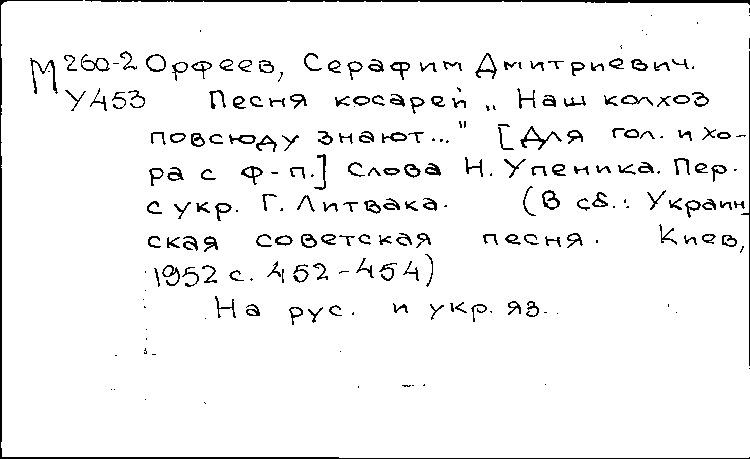 М 260-2 Орфеев, Серафим Дмитриевич.
У453 Песня косарей „Наш колхоз
повсюду знают..." [Для гол. и хо-
ра с ф-п.] Слова Н. Упеника. Пер.
с укр. Г. Литвака. (В сб.: Украин_
ская советская песня. Киев,
1952 с. 452-454)
На рус. и укр. яз.